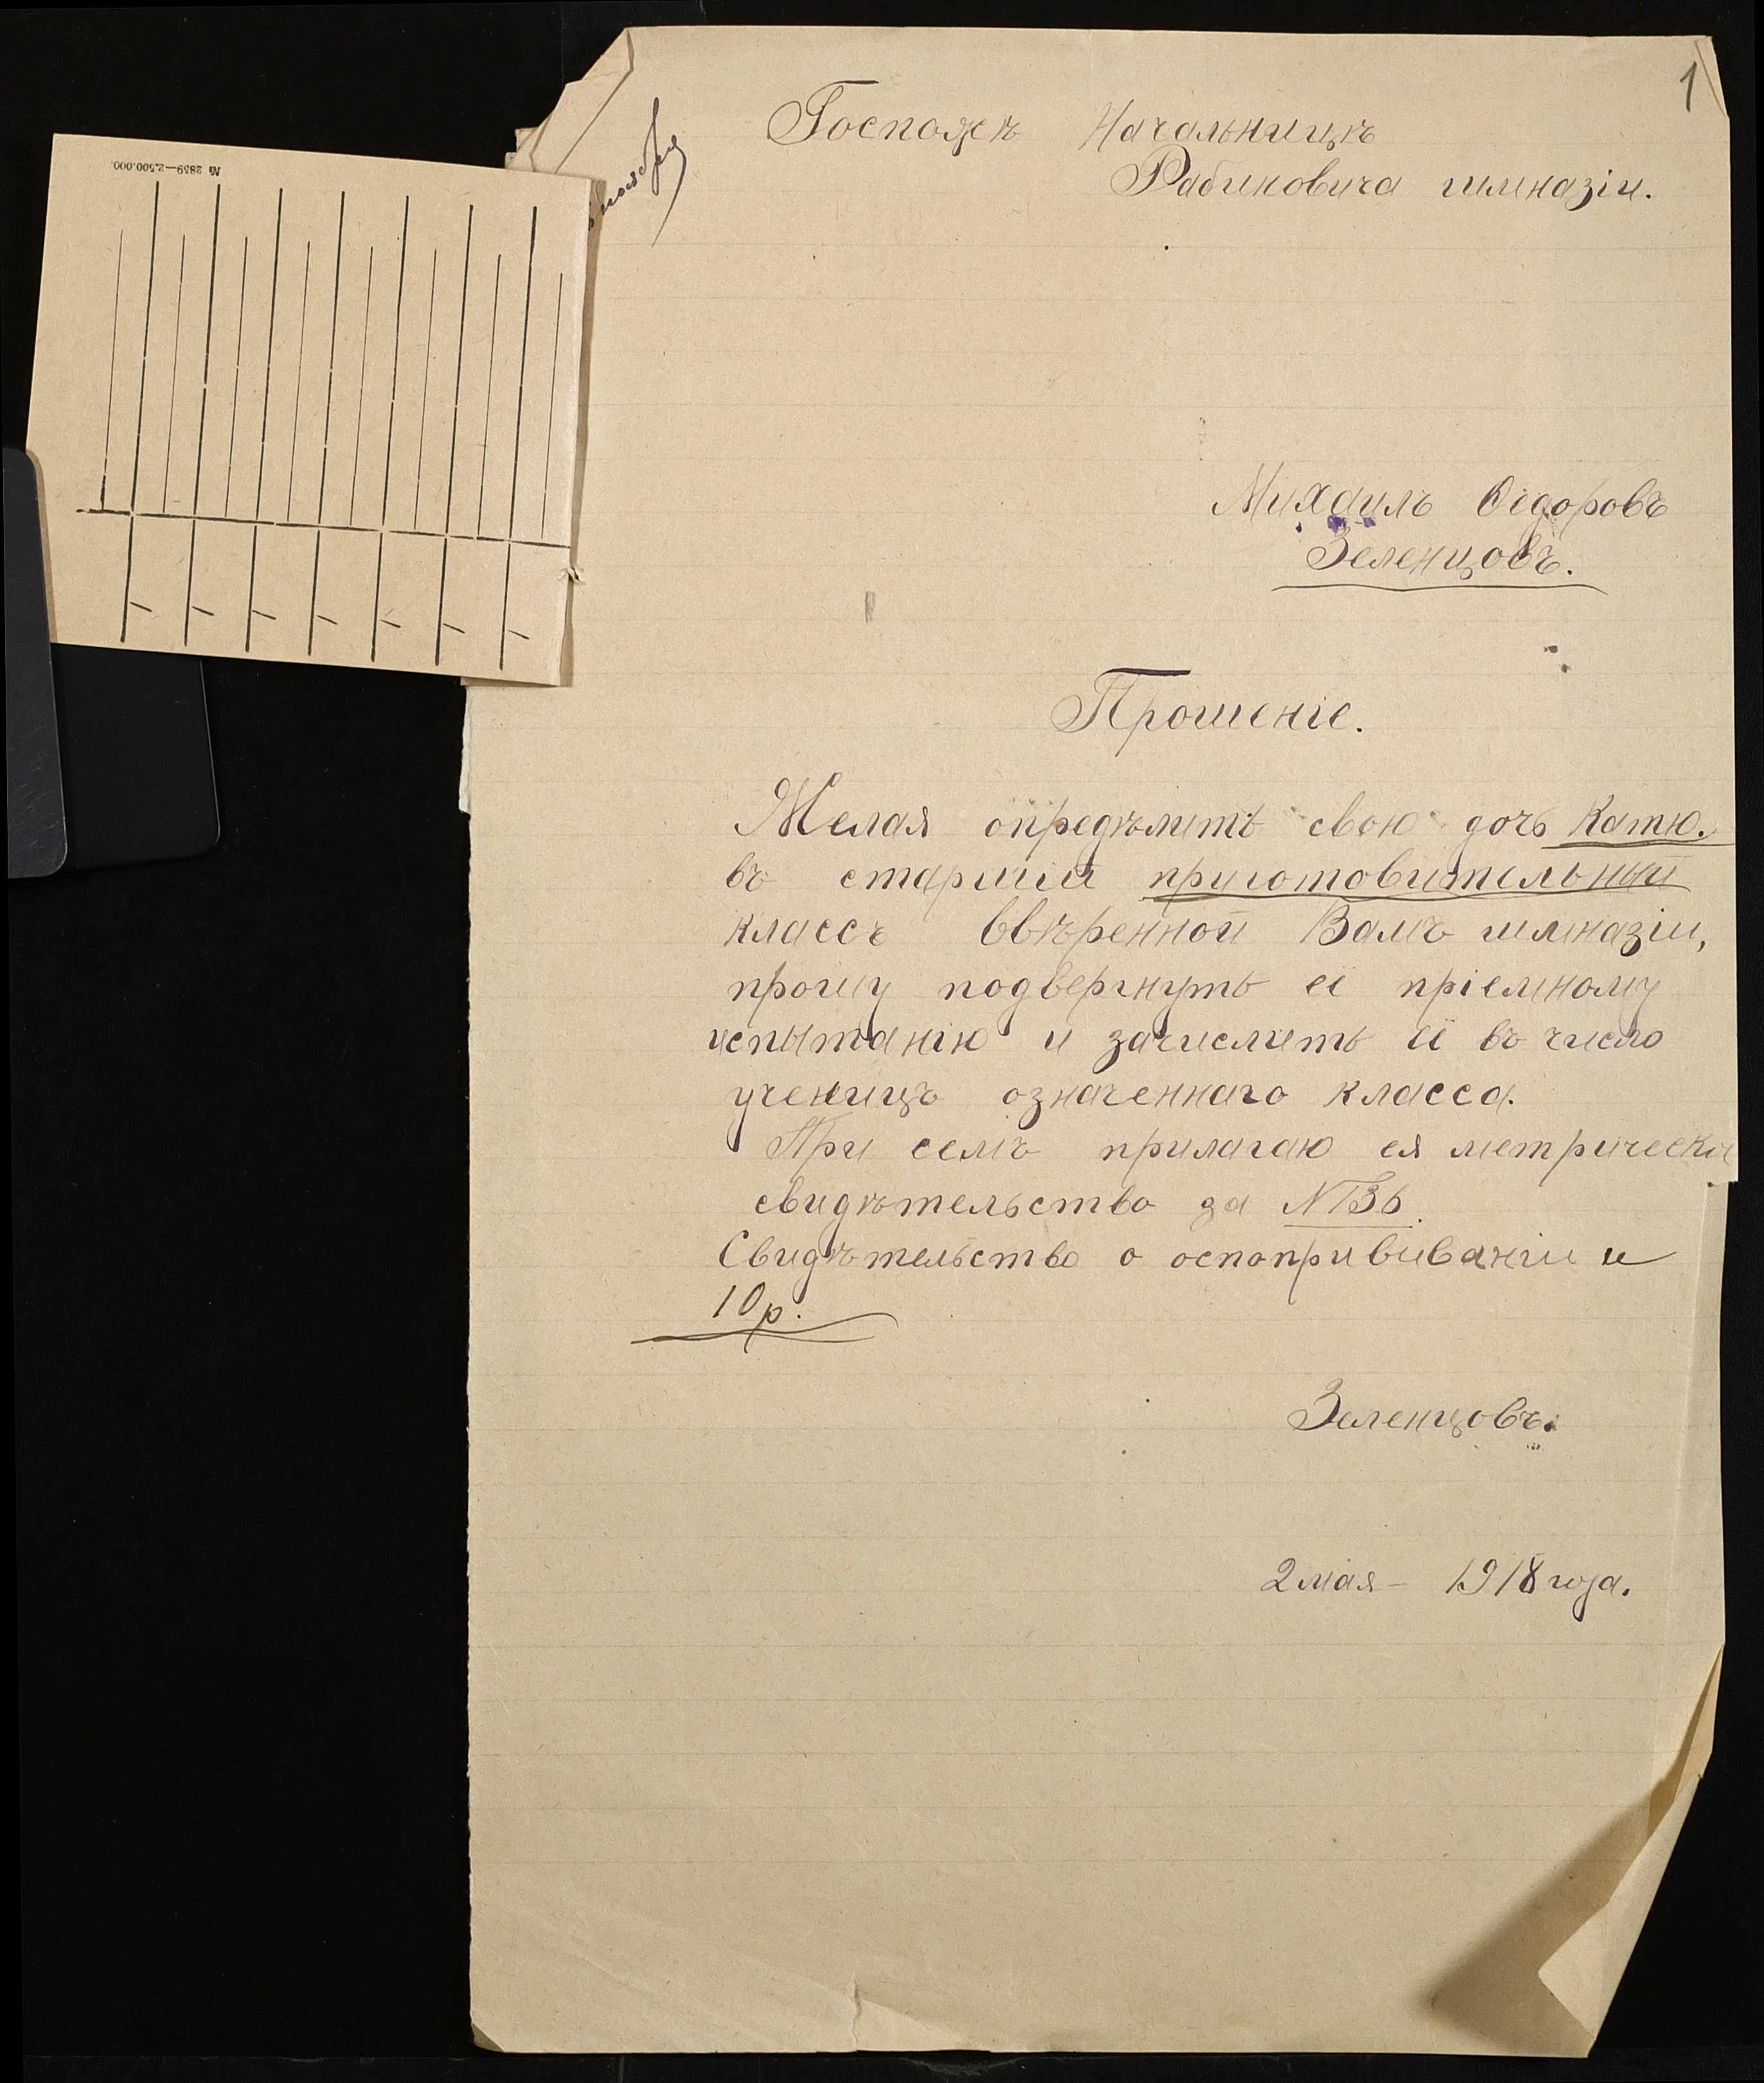 1
Госпожѣ Начальницѣ
Рабиновича гимназіи.
№ 2859—2.500.000.
Михаилъ Ѳедоровъ
Зеленцовъ.
Прошеніе.
Желая опредѣлить свою дочь Катю.
въ старшій приготовительный
классъ ввѣренной Вамъ гимназіи,
прошу подвергнуть её пріемному
испытанію и зачислить её въ число
ученицъ означеннаго класса.
При семъ прилагаю ея метрическ
свидѣтельство за №36.
Свидѣтельство о оспопрививаніи и
10р.
Зеленцовъ.
2 мая – 1918 года.